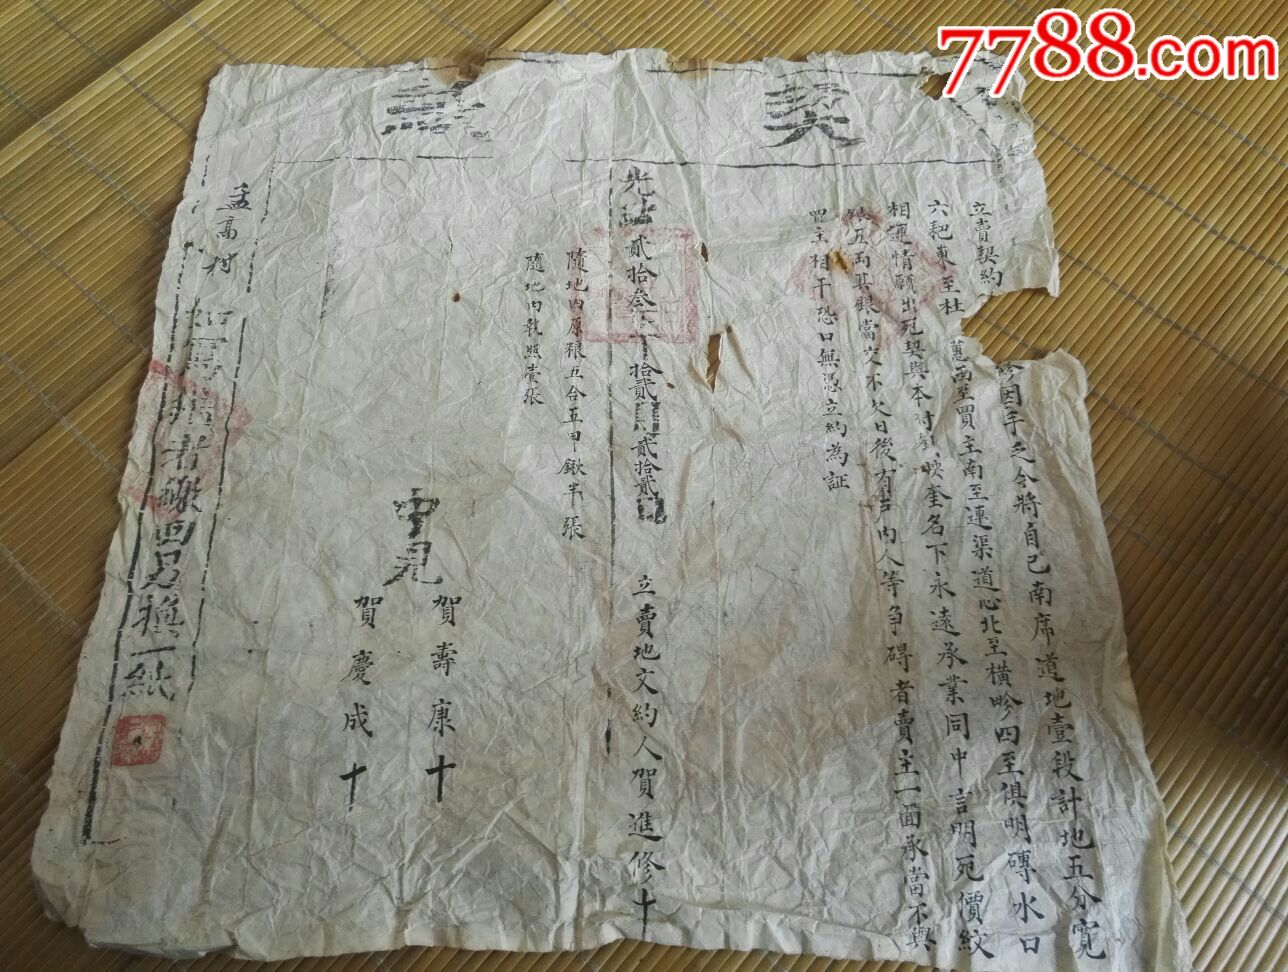 7788.com
契
立賣契約
修因手乏今將自己南席道地壹段計地五分寬
六耙東至杜
蕙西至買主南至連渠道心北至橫畛四至俱明磚水口
相連情願出死契與本村劉映奎名下永遠承業同中言明死價紋
銀五両其銀當交不欠日後有戶內人等争碍者賣主一面承當不與
買主相干恐口無憑立約為証
光緒貳拾叁年拾貳月貳拾貳日
立賣地文約人賀進修十
隨地內原粮五合五甲鍬半張
隨地內執照壹張
中見
賀壽康十
賀慶成十
孟高村
一紙